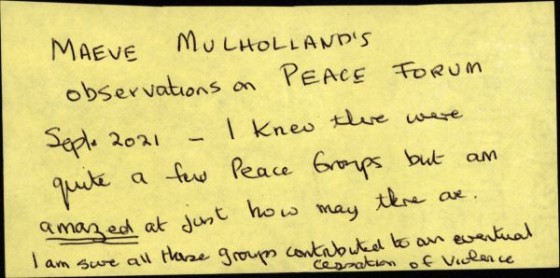 MAEVE MULHOLLAND'S
observations on PEACE FORUM
Sept. 2021 - I knew there were
quite a few Peace Groups but am
amazed at just how may there are.
I am sure all these groups contributed to an eventual
cessation of violence